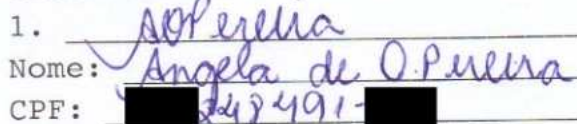 1. AOPereira
Nome: Angela de O. Pereira
CPF: 248491-